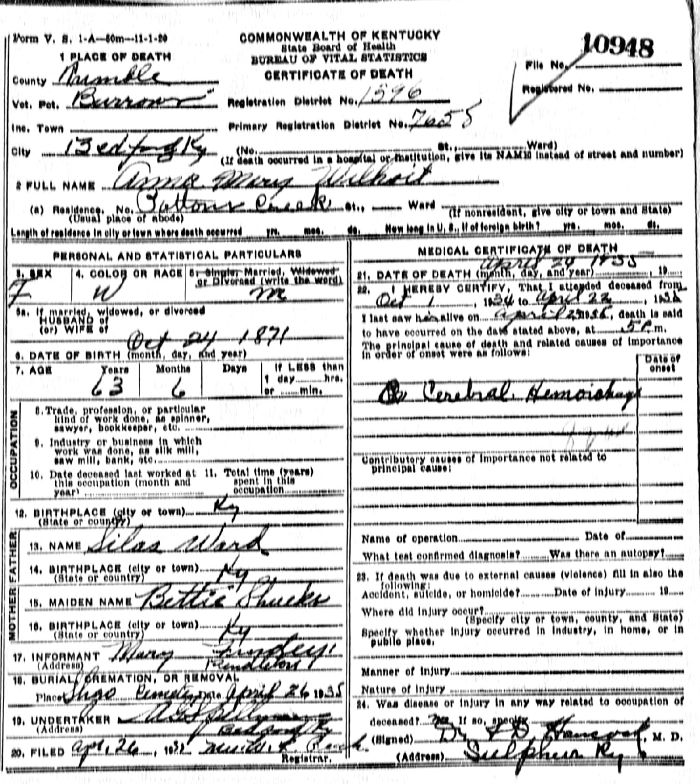 Form V. S. 1-A—50m—11-1-20
COMMONWEALTH OF KENTUCKY
State Board of Health
BUREAU OF VITAL STATISTICS
CERTIFICATE OF DEATH
File No. 10948
Registered No.
1 PLACE OF DEATH
County Trimble
Vot. Pct. Burrows
Registration District No. 1396
Inc. Town
Primary Registration District No. 7655
City Bedford Ky (No. St., Ward)
(If death occurred in a hospital or institution, give its NAME instead of street and number)
2 FULL NAME Anna Mary Wilhoit
(a) Residence. No. Pattons Creek St., Ward
(Usual place of abode) (If nonresident, give city or town and State)
Length of residence in city or town where death occurred yrs. mos. ds. How long in U. S., if of foreign birth? yrs. mos. ds.
PERSONAL AND STATISTICAL PARTICULARS
3. SEX F
4. COLOR OR RACE W
5. Single, Married, Widowed or Divorced (write the word) M
5a. If married, widowed, or divorced
HUSBAND of
(or) WIFE of
6. DATE OF BIRTH (month, day, and year) Oct 24 1871
7. AGE Years 63 Months 6 Days
If LESS than
1 day hrs.
or min.
OCCUPATION
8. Trade, profession, or particular
kind of work done, as spinner,
sawyer, bookkeeper, etc.
9. Industry or business in which
work was done, as silk mill,
saw mill, bank, etc.
10. Date deceased last worked at
this occupation (month and
year)
11. Total time (years)
spent in this
occupation
12. BIRTHPLACE (city or town) Ky
(State or country)
FATHER
13. NAME Silas Ward
14. BIRTHPLACE (city or town) Ky
(State or country)
MOTHER
15. MAIDEN NAME Bettie Shucks
16. BIRTHPLACE (city or town) Ky
(State or country)
17. INFORMANT Mary
(Address) Pendleton
18. BURIAL, CREMATION, OR REMOVAL
Place Date April 26 1935
19. UNDERTAKER
(Address) Bedford Ky
20. FILED Apr. 26, 1935
Registrar.
MEDICAL CERTIFICATE OF DEATH
21. DATE OF DEATH (month, day, and year) April 24 1935, 19
22. I HEREBY CERTIFY, That I attended deceased from
Oct 1, 1934 to April 22, 1935
I last saw her alive on April 1935, death is said
to have occurred on the date stated above, at 5 P.m.
The principal cause of death and related causes of importance
in order of onset were as follows:
Date of onset
Cerebral Hemorrhage
Contributory causes of importance not related to
principal cause:
Name of operation Date of
What test confirmed diagnosis? Was there an autopsy?
23. If death was due to external causes (violence) fill in also the
following:
Accident, suicide, or homicide? Date of injury 19
Where did injury occur?
(Specify city or town, county, and State)
Specify whether injury occurred in industry, in home, or in
public place.
Manner of injury
Nature of injury
24. Was disease or injury in any way related to occupation of
deceased? No If so, specify
(Signed) Dr Hancock, M. D.
(Address) Sulphur Ky